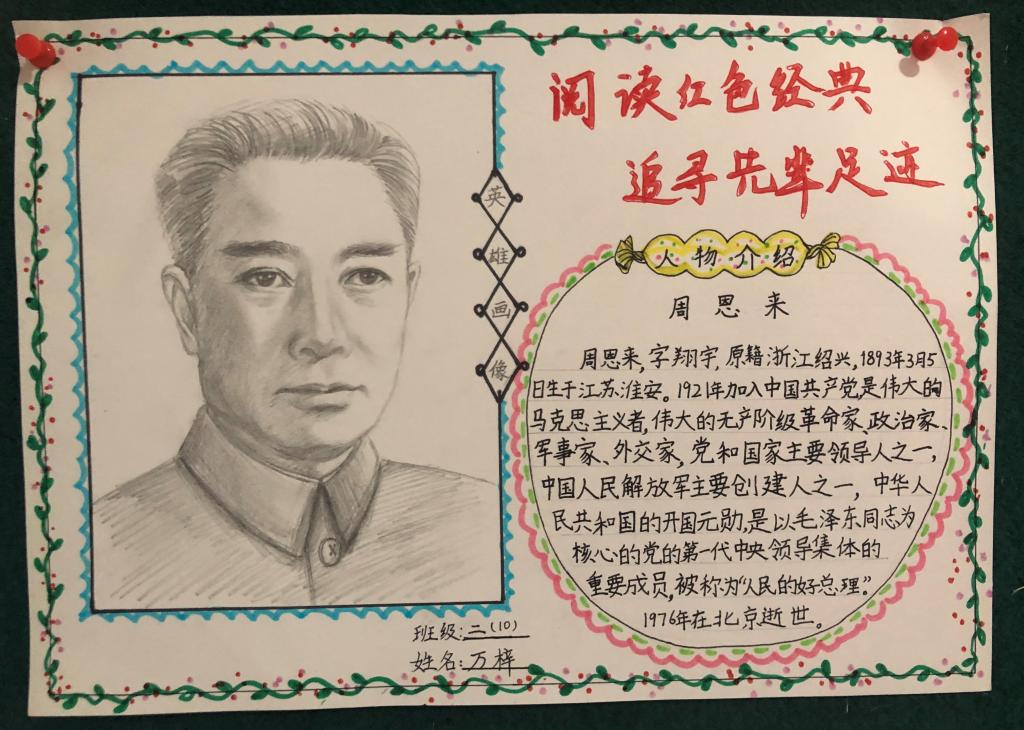 阅读红色经典
追寻先辈足迹
英雄画像
人物介绍
周恩来
周恩来,字翔宇,原籍浙江绍兴,1893年3月5
日生于江苏淮安。1921年加入中国共产党是伟大的
马克思主义者,伟大的无产阶级革命家、政治家、
军事家、外交家,党和国家主要领导人之一,
中国人民解放军主要创建人之一,中华人
民共和国的开国元勋,是以毛泽东同志为
核心的党的第一代中央领导集体的
重要成员,被称为"人民的好总理"。
1976年在北京逝世。
班级:二(10)
姓名:万梓